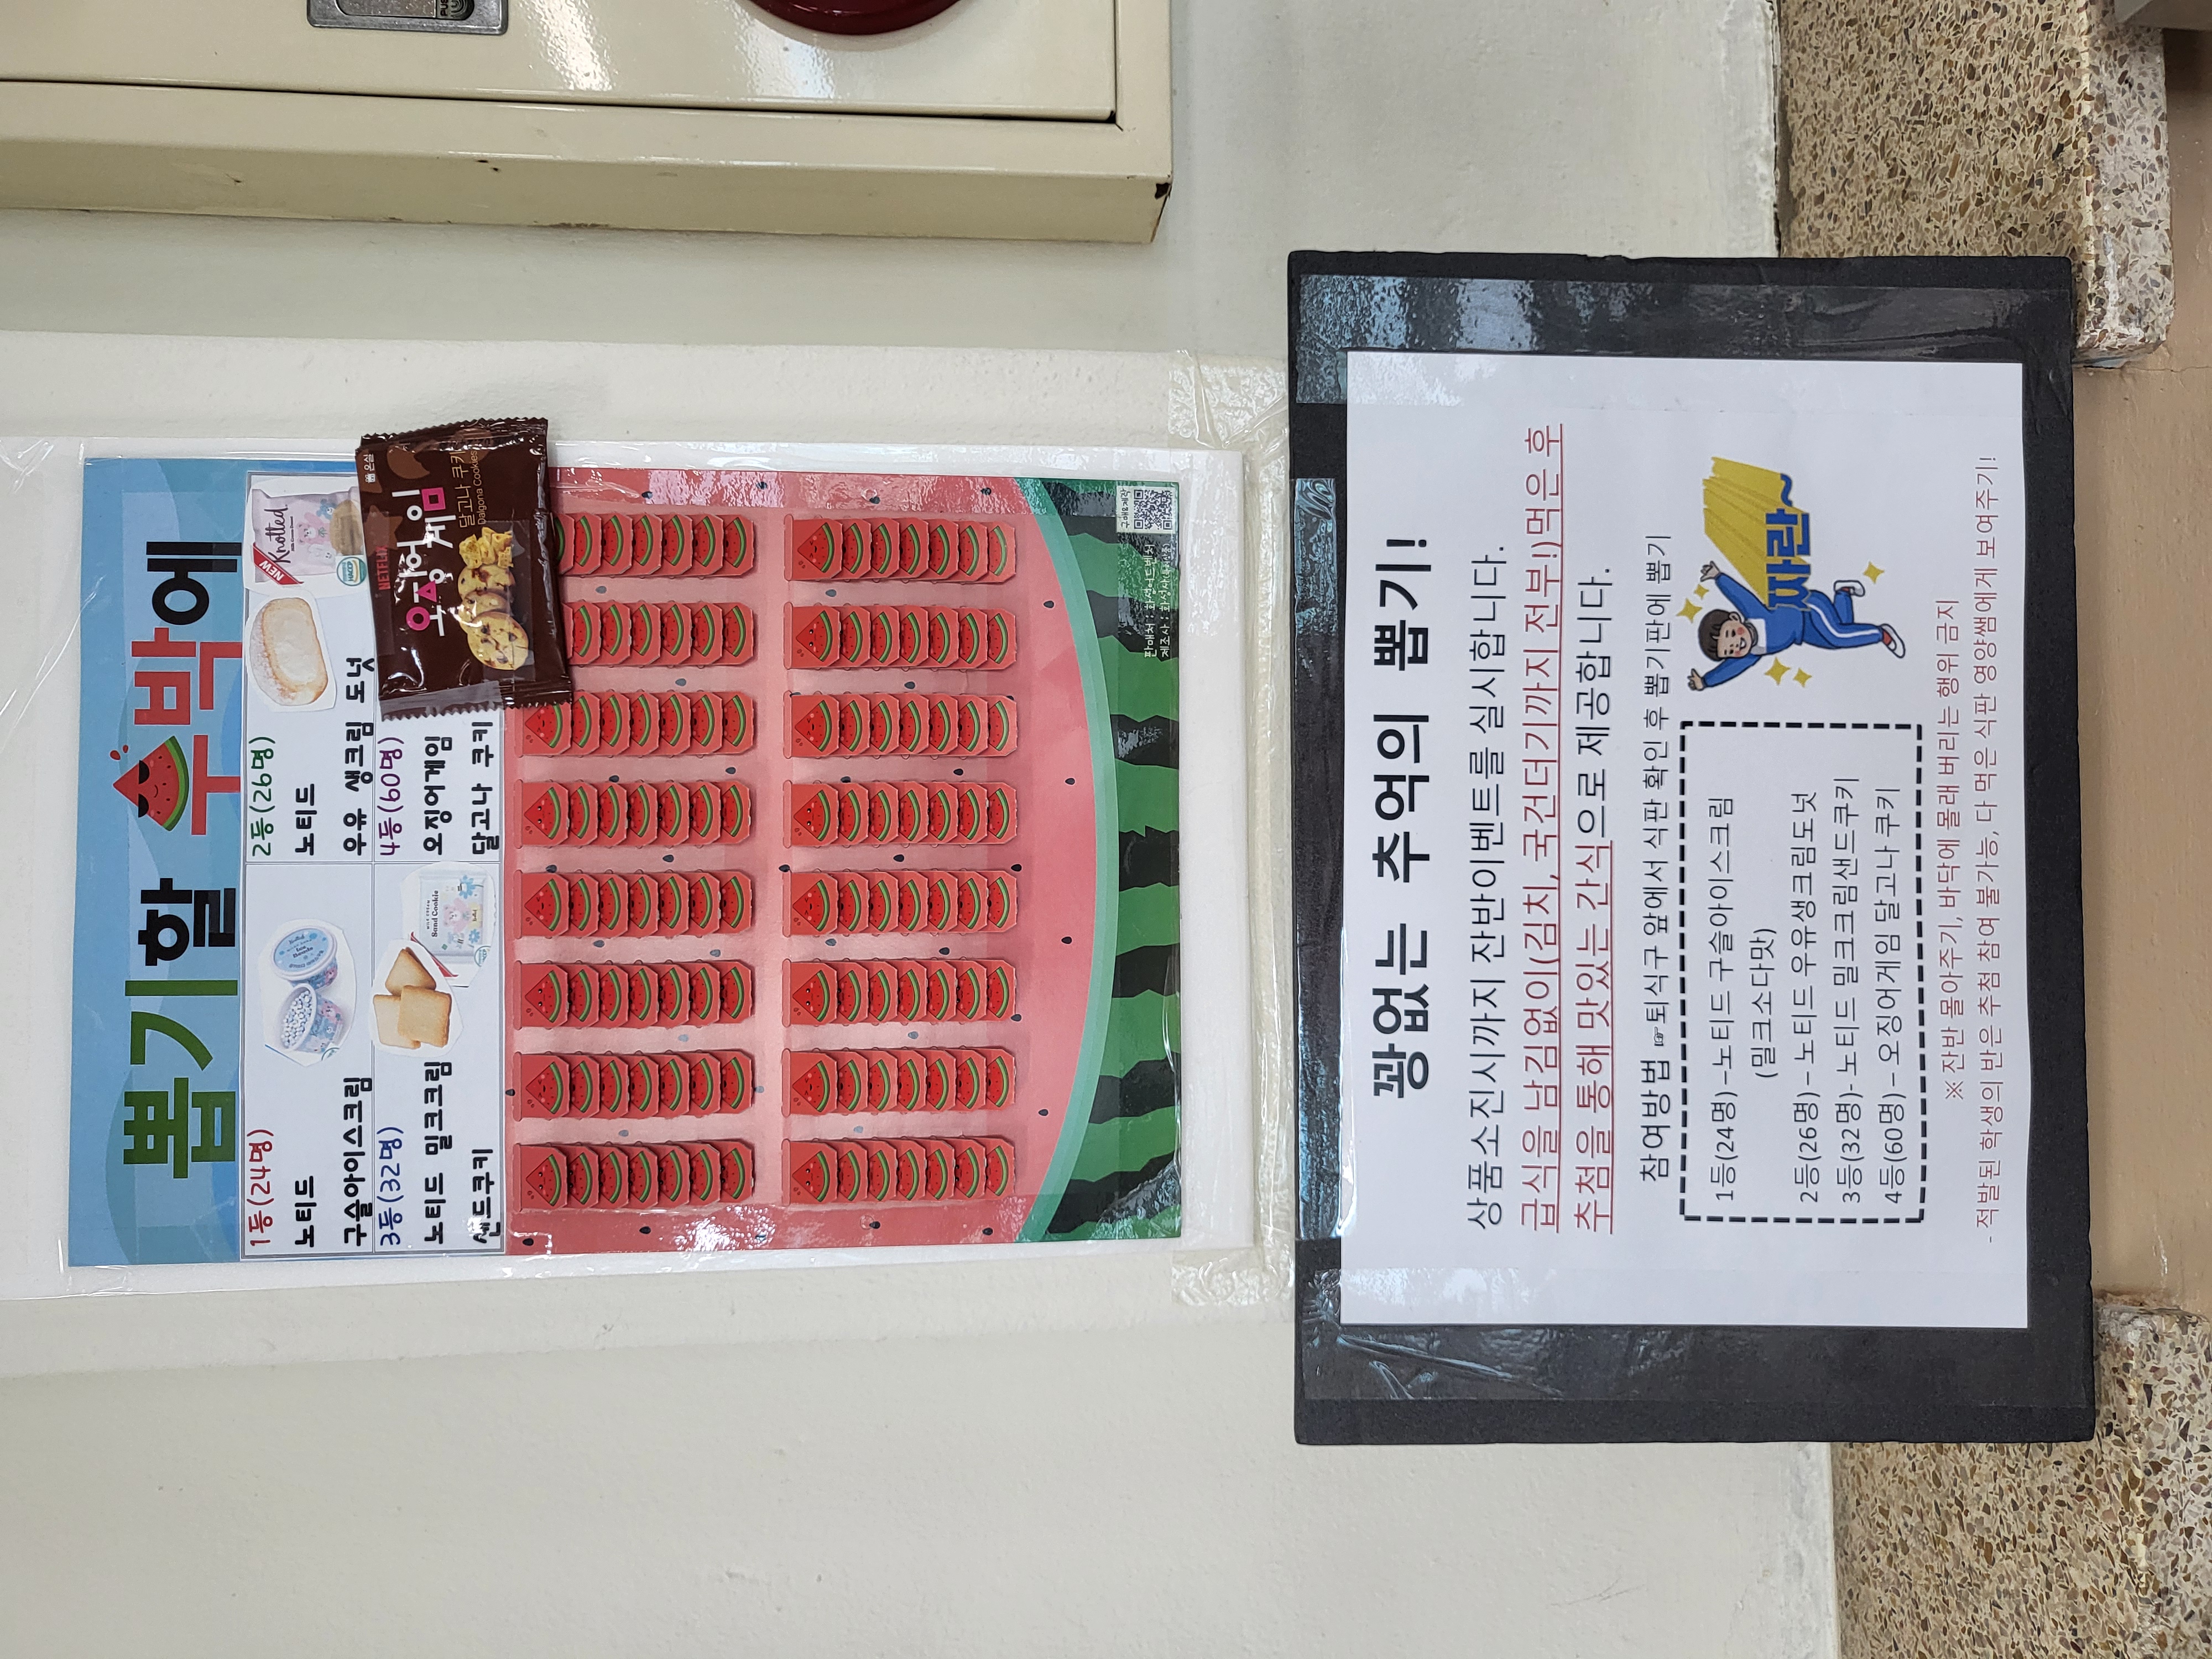 뽑기할 수박에
1등(24명)
노티드
구슬아이스크림
2등(26명)
노티드
우유 생크림 도넛
3등(32명)
노티드 밀크크림
샌드쿠키
4등(60명)
오징어게임
달고나 쿠키
NEW
Knotted
HACCP
Sand Cookie
NETFLIX
오징어 게임
달고나 쿠키
Dalgona Cookies
구매&제작
꽝없는 추억의 뽑기!
상품소진시까지 잔반이벤트를 실시합니다.
급식을 남김없이(김치, 국건더기까지 전부!)먹은 후
추첨을 통해 맛있는 간식으로 제공합니다.
참여방법 ☞퇴식구 앞에서 식판 확인 후 뽑기판에 뽑기
1등(24명) –노티드 구슬아이스크림
(밀크소다맛)
2등(26명) – 노티드 우유생크림도넛
3등(32명)- 노티드 밀크크림샌드쿠키
4등(60명) – 오징어게임 달고나 쿠키
짜란~
※잔반 몰아주기, 바닥에 몰래 버리는 행위 금지
- 적발된 학생의 반은 추첨 참여 불가능, 다 먹은 식판 영양쌤에게 보여주기!